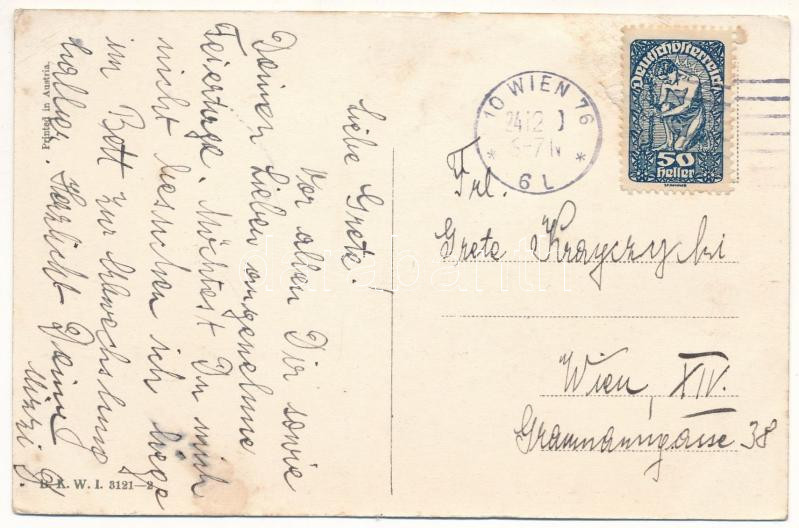 Liebe Grete!
Vor allem Dir sowie
Deinen Lieben angenehme
Feiertage. Möchtest Du mich
nicht besuchen ich liege
im Bett zur Abwechslung
halber. Herzlichst Deine
Mizzi
Printed in Austria.
B. K. W. I. 3121—2
10 WIEN 76
24 12
6 L
Deutschösterreich
50
Heller
Frl.
Grete Krayczyki
Wien, XIV.
Grammanngasse 38